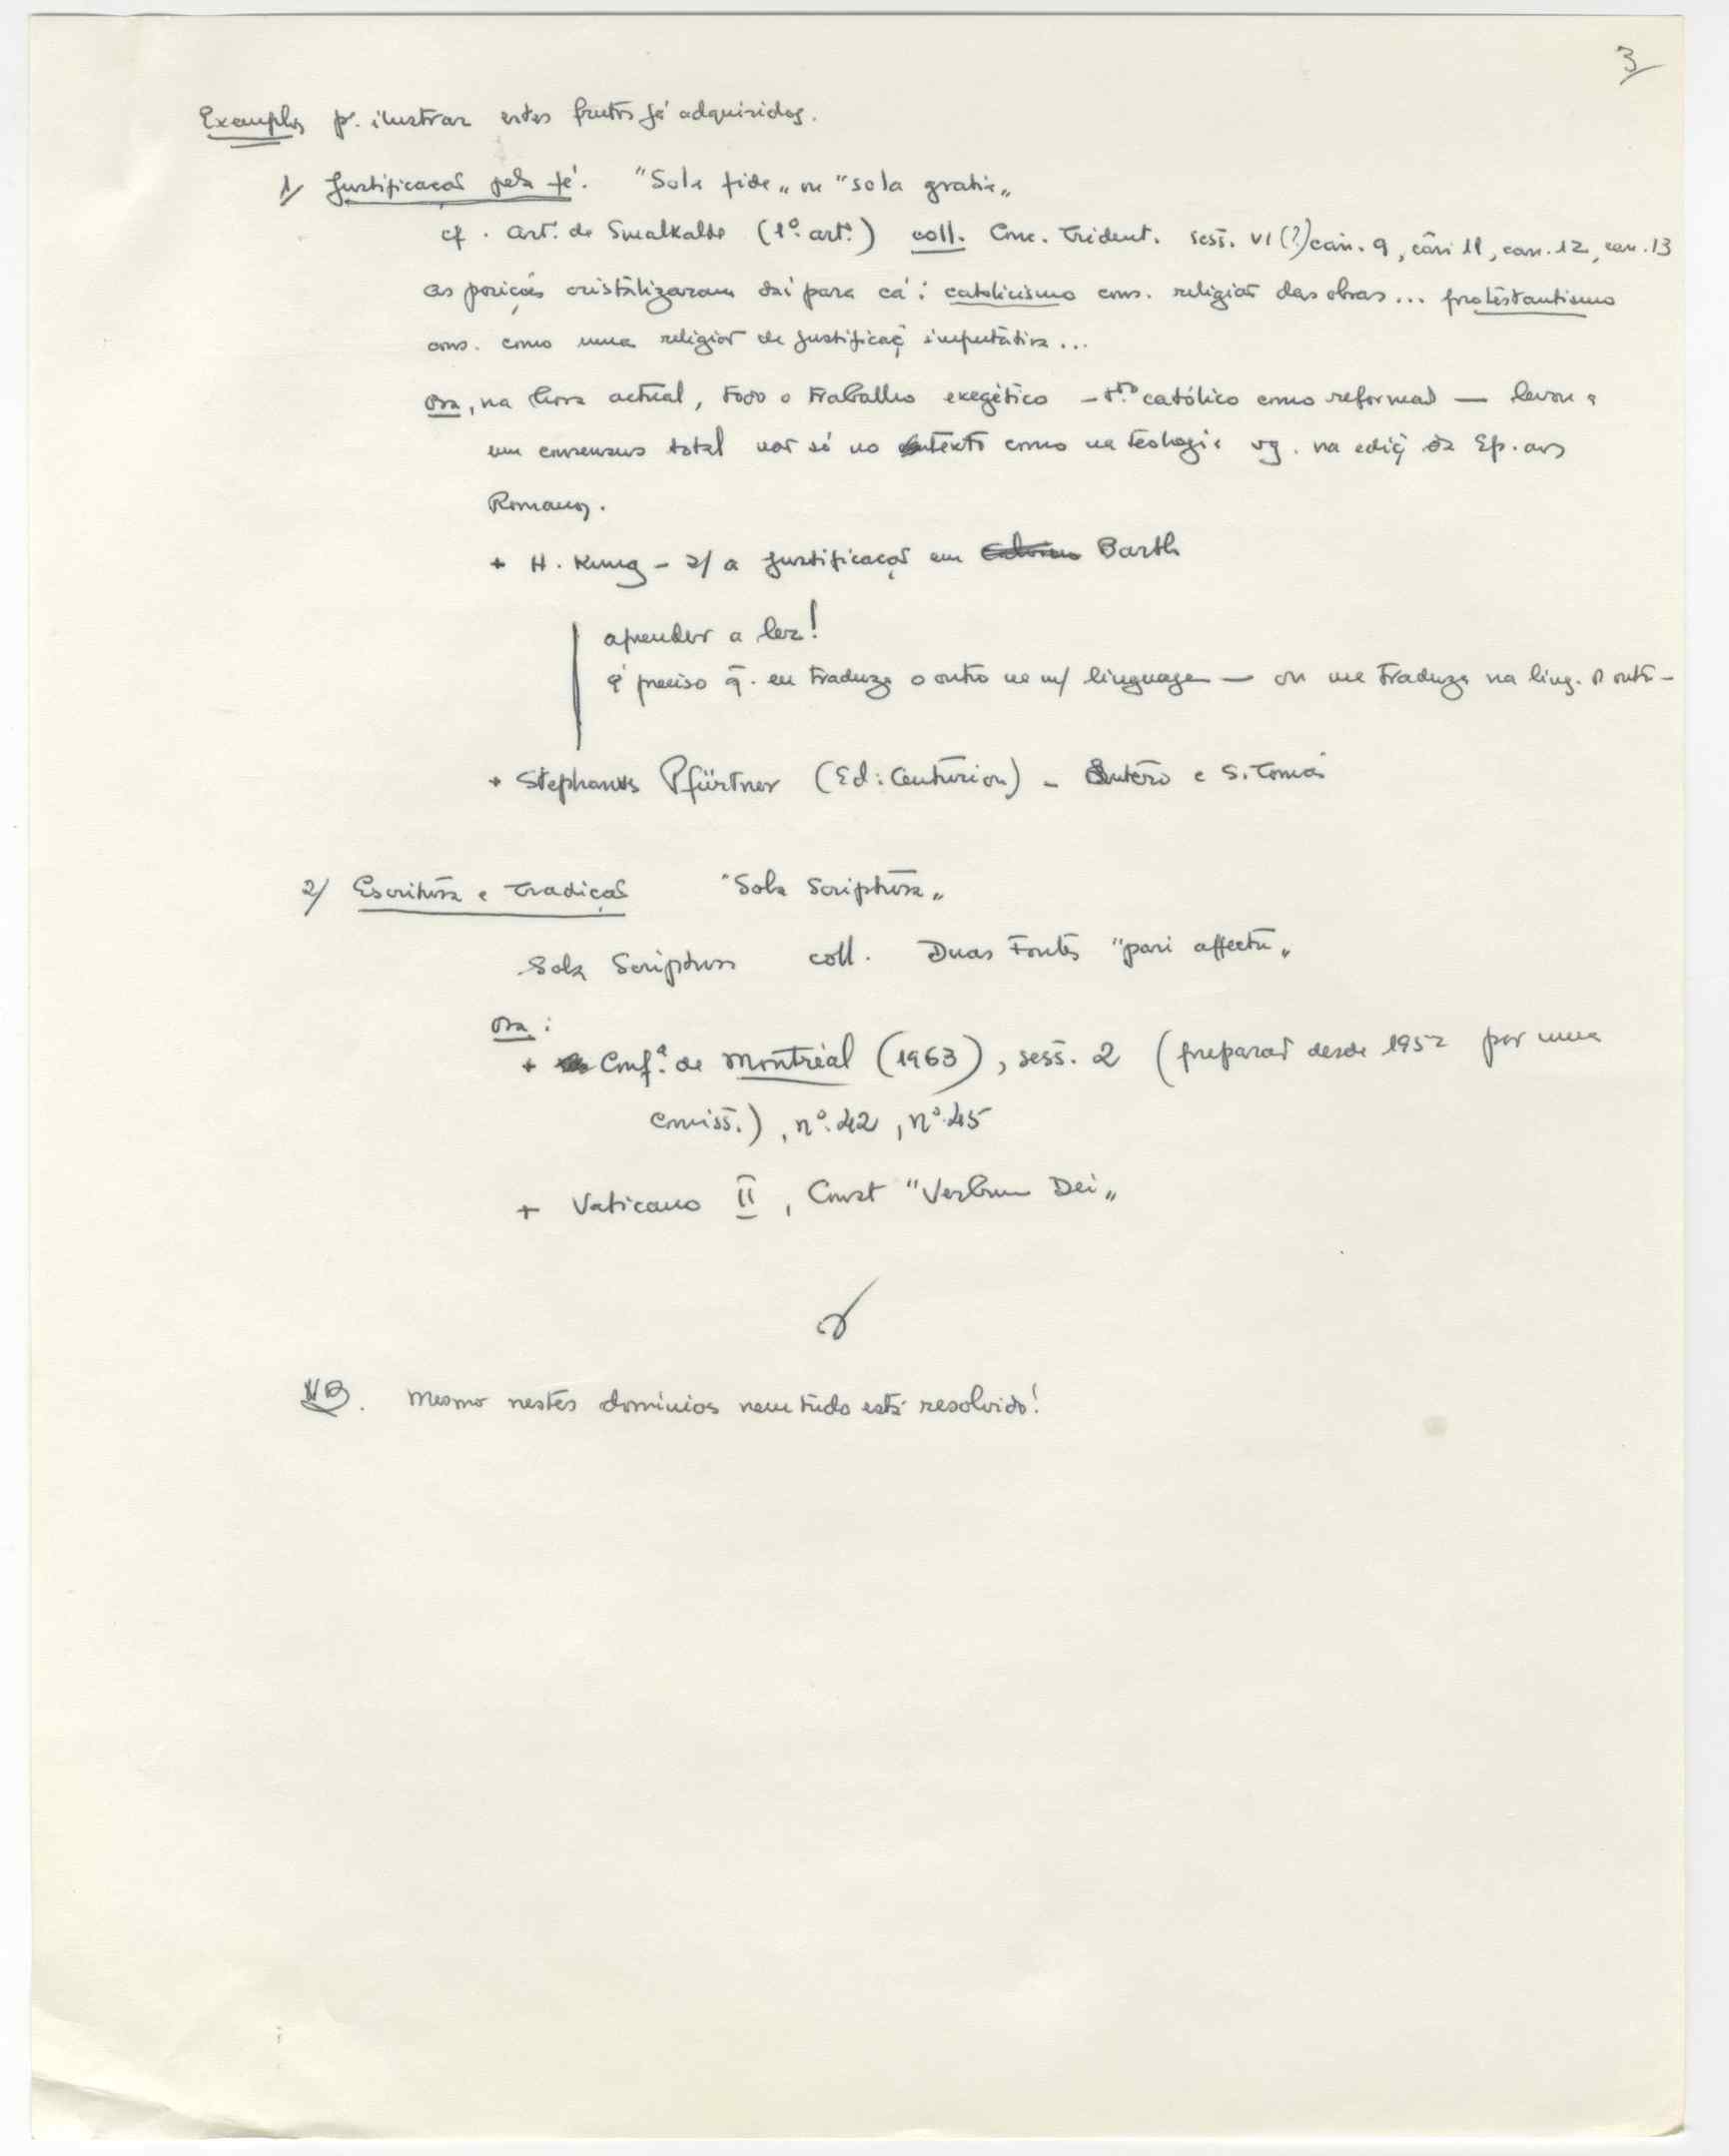 3
Exemplos p. ilustrar estes frutos já adquiridos.
1/ Justificação pela fé. "Sola fide" ou "sola gratia"
cf. art. de Smalkalde (1º. artº.) coll. Conc. Trident. sess. VI (?) can. 9, can 11, can. 12, can. 13
As posições cristalizaram daí para cá: catolicismo cons. religião das obras... protestantismo
cons. como uma religião de justificaç imputativa...
Ora, na hora actual, todo o trabalho exegético - tto católico como reformado — levou a
um consensus total não só no texto como na teologia vg. na ediç da Ep. aos
Romanos.
+ H. Kung - s/ a justificação em Barth
aprender a ler!
é preciso q. eu traduza o outro na m/ linguagem — ou me traduza na ling. do outro -
+ Stephanus Pfürtner (Ed: Centurion) - Lutero e S. Tomás
2/ Escritura e Tradição "Sola Scriptura"
Sola Scriptura coll. Duas Fontes "pari affectu"
Ora:
+ Confª. de Montréal (1963), sess. 2 (preparado desde 1952 por uma
comiss.), nº. 42, nº. 45
+ Vaticano II, Const "Verbum Dei"
NB. Mesmo nestes domínios nem tudo está resolvido!